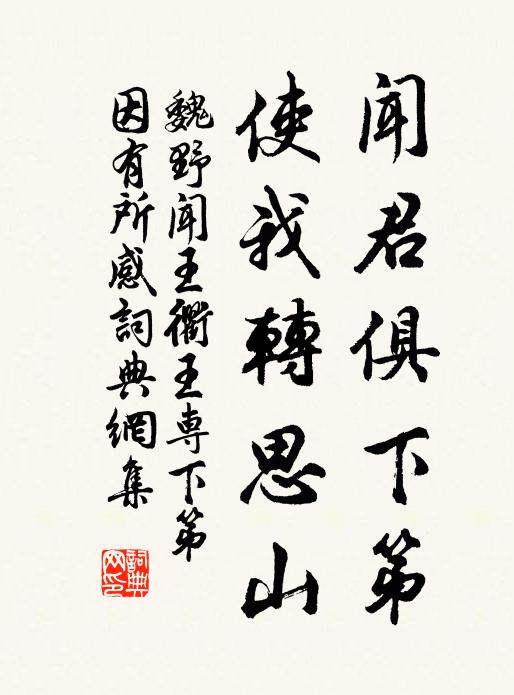 聞君俱下第
使我轉思山
魏野聞王衢王専下第
因有所感詞典網集
詞典網印